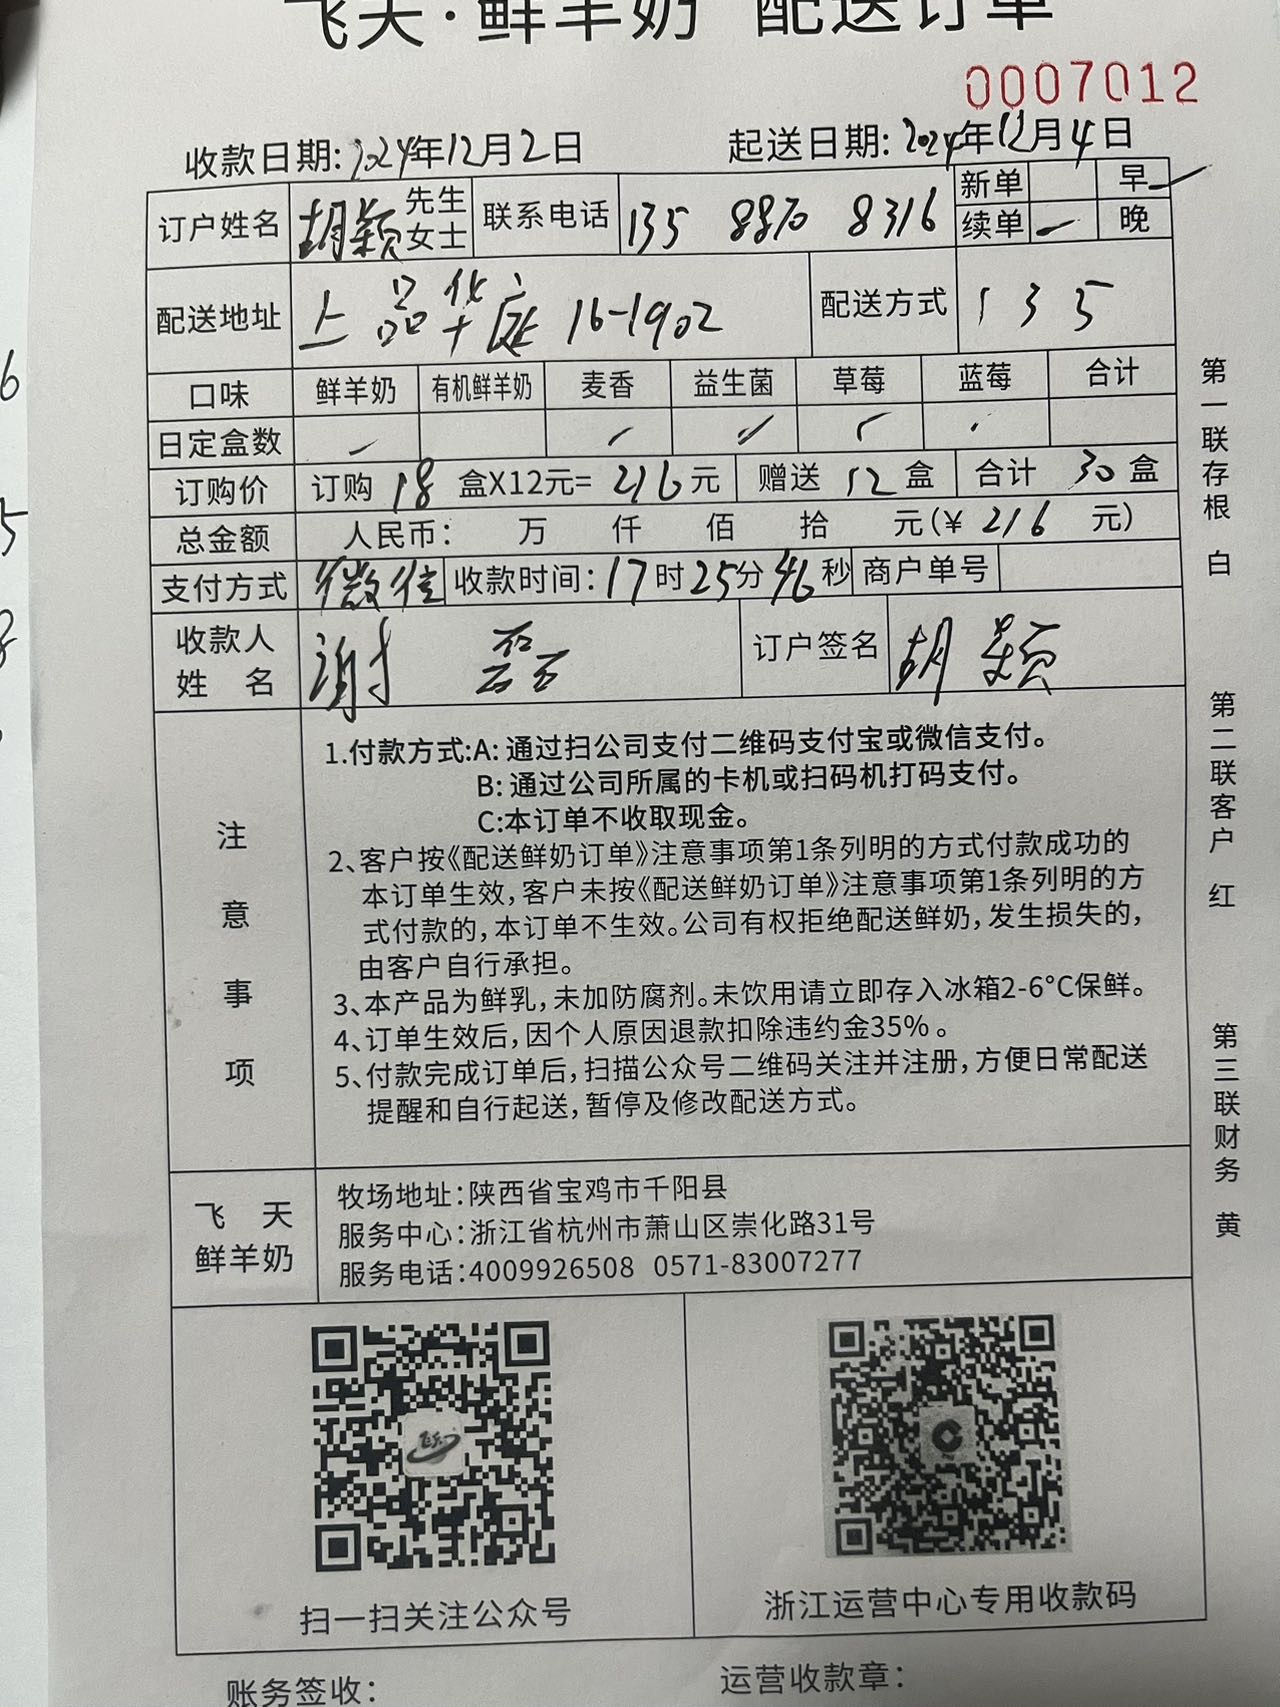 飞天·鲜羊奶 配送订单
0007012
收款日期:2024年12月2日 起送日期:2024年12月4日
订户姓名 胡颖 先生 女士 联系电话 135 8870 8316 新单 早 ✓
续单 ✓ 晚
配送地址 上品华庭 16-1902 配送方式 1 3 5
口味 鲜羊奶 有机鲜羊奶 麦香 益生菌 草莓 蓝莓 合计
日定盒数
订购价 订购 18 盒X12元= 216 元 赠送 12 盒 合计 30 盒
总金额 人民币: 万 仟 佰 拾 元(¥ 216 元)
支付方式 微信 收款时间:17时25分46秒 商户单号
收款人姓名 谢磊 订户签名 胡颖
注意事项
1.付款方式:A:通过扫公司支付二维码支付宝或微信支付。
B:通过公司所属的卡机或扫码机打码支付。
C:本订单不收取现金。
2、客户按《配送鲜奶订单》注意事项第1条列明的方式付款成功的
本订单生效,客户未按《配送鲜奶订单》注意事项第1条列明的方
式付款的,本订单不生效。公司有权拒绝配送鲜奶,发生损失的,
由客户自行承担。
3、本产品为鲜乳,未加防腐剂。未饮用请立即存入冰箱2-6°C保鲜。
4、订单生效后,因个人原因退款扣除违约金35%。
5、付款完成订单后,扫描公众号二维码关注并注册,方便日常配送
提醒和自行起送,暂停及修改配送方式。
飞天
鲜羊奶
牧场地址:陕西省宝鸡市千阳县
服务中心:浙江省杭州市萧山区崇化路31号
服务电话:4009926508 0571-83007277
扫一扫关注公众号 浙江运营中心专用收款码
账务签收: 运营收款章:
第一联存根 白
第二联客户 红
第三联财务 黄